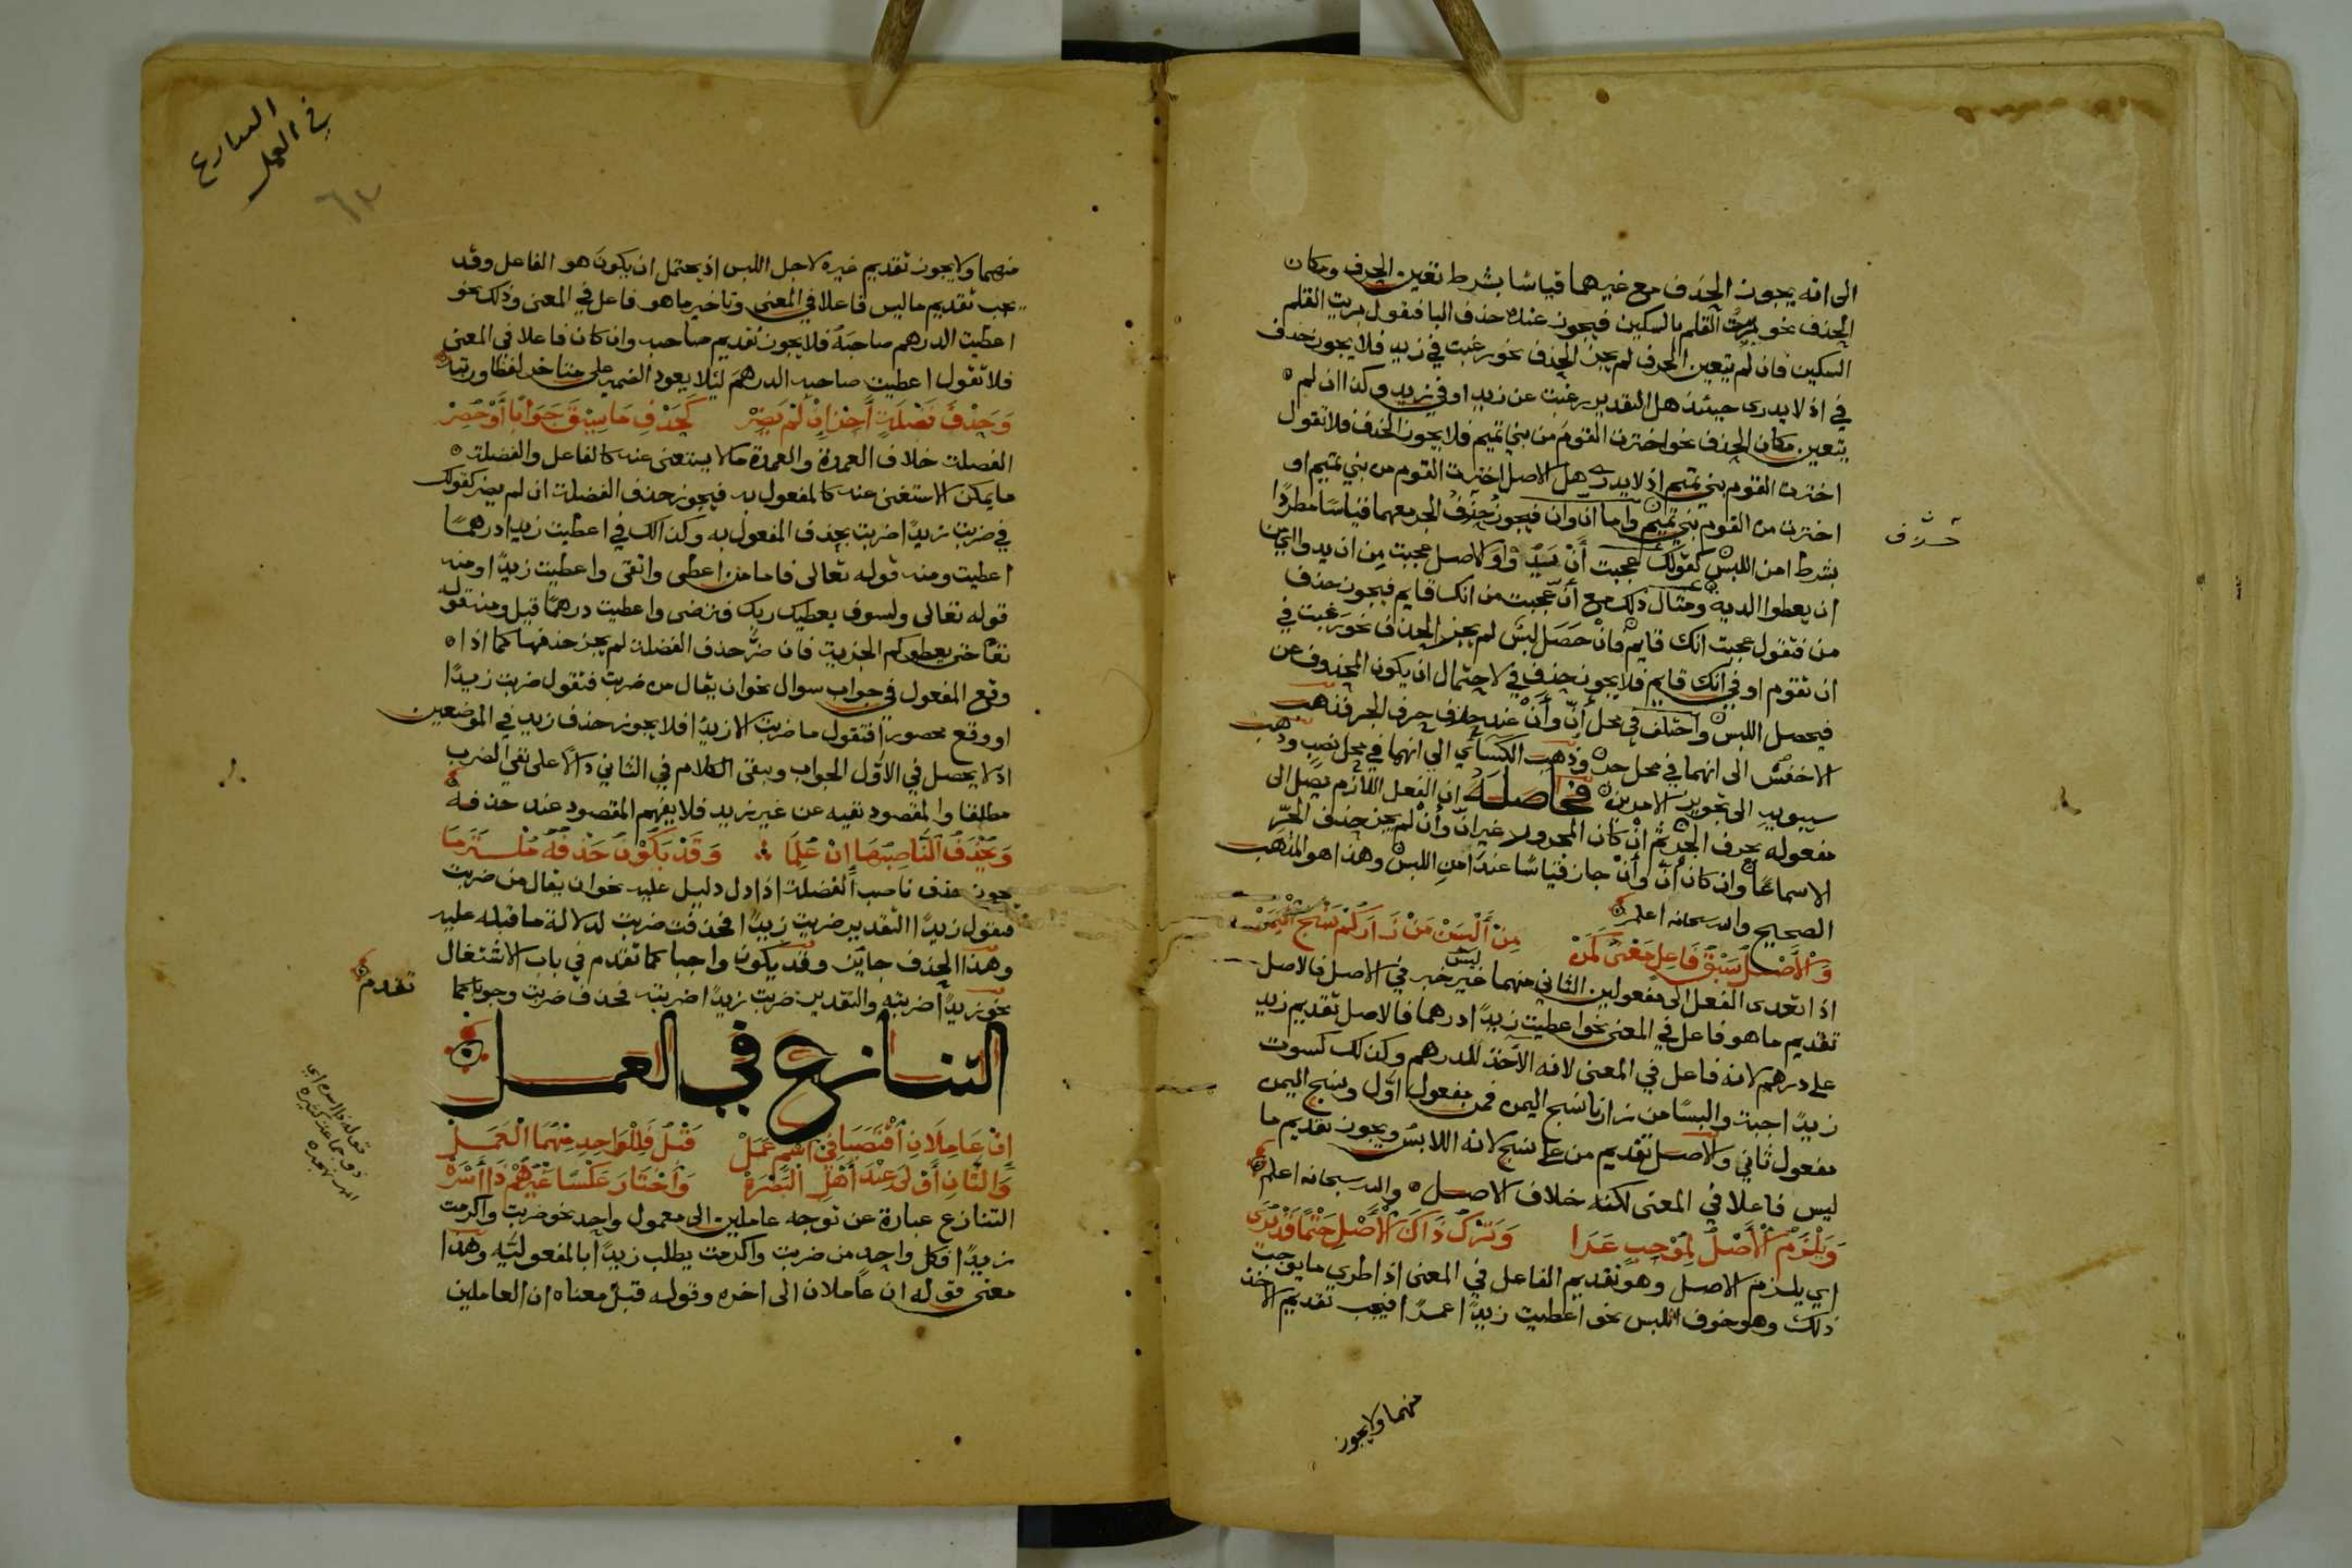 الى انه يجوز الحذف مع غيرهما قياسا بشرط تعين الحرف ومكان
الحذف نحو بريت القلم بالسكين فيجوز عنده حذف البا فتقول بريت القلم
السكين فان لم يتعين الحرف لم يجز الحذف نحو رغبت في زيد فلا يجوز حذف
في اذ لا يدرى حينئذ هل التقدير رغبت عن زيد او في زيد وكذا ان لم
يتعين مكان الحذف نحو اخترت القوم من بني تميم فلا يجوز الحذف فلا تقول
اخترت القوم بني تميم اذ لا يدرى هل الاصل اخترت القوم من بني تميم او
اخترت من القوم بني تميم واما ان وان فيجوز حذف الجر معهما قياسا مطردا
حذف
بشرط امن اللبس كقولك عجبت أن يدوا والاصل عجبت من ان يدوا اي من
ان يعطوا الديه ومثال ذلك مع أن عجبت من انك قايم فيجوز حذف
من فتقول عجبت انك قايم فان حصل لبس لم يجز الحذف نحو رغبت في
ان تقوم او في انك قايم فلا يجوز حذف في لاحتمال ان يكون المحذوف عن
فيحصل اللبس واختلف في محل أن وأن عند حذف حرف الجر فذهب
الاخفش الى انهما في محل جر وذهب الكسائي الى انهما في محل نصب وذهب
سيبويه الى تجويز الامرين فحاصله ان الفعل اللازم يصل الى
مفعوله بحرف الجر ثم ان كان المجرور غير ان وأن لم يجز حذف الجر
الا سماعا وان كان أن وأن جاز قياسا عند امن اللبس وهذا هو المذهب
الصحيح والله سبحانه اعلم
والأصل سبق فاعل معنى كمن من ألبسن من زاركم نسج اليمن
اذا تعدى الفعل الى مفعولين الثاني منهما ليس خبر في الاصل فالاصل
تقديم ما هو فاعل في المعنى نحو اعطيت زيدا درهما فالاصل تقديم زيد
على درهم لانه فاعل في المعنى لانه الآخذ للدرهم وكذلك كسوت
زيدا جبة والبسا من زارنا نسج اليمن فمن مفعول اول ونسج اليمن
مفعول ثاني والاصل تقديم من على نسج لانه اللابس ويجوز تقديم ما
ليس فاعلا في المعنى لكنه خلاف الاصل والله سبحانه اعلم
ويلزم الأصل لموجب عرا وترك ذاك الأصل حتما قد يرى
اي يلزم الاصل وهو تقديم الفاعل في المعنى اذا طرى ما يوجب
ذلك وهو خوف اللبس نحو اعطيت زيدا عمرا فيجب تقديم الاخذ
منهما ولا يجوز
التنازع
في العمل
منهما ولا يجوز تقديم غيره لاجل اللبس اذ يحتمل ان يكون هو الفاعل وقد
يجب تقديم ما ليس فاعلا في المعنى وتاخير ما هو فاعل في المعنى وذلك نحو
اعطيت الدرهم صاحبه فلا يجوز تقديم صاحبه وان كان فاعلا في المعنى
فلا تقول اعطيت صاحبه الدرهم ليلا يعود الضمير على متاخر لفظا ورتبة
وحذف فضلة أجز إن لم يضر كحذف ما سيق جوابا أو حصر
الفضلة خلاف العمدة والعمدة ما لا يستغنى عنه كالفاعل والفضلة
ما يمكن الاستغنى عنه كالمفعول به فيجوز حذف الفضلة ان لم يضر كقولك
في ضربت زيدا ضربت بحذف المفعول به وكذلك في اعطيت زيدا درهما
اعطيت ومنه قوله تعالى فاما من اعطى واتقى واعطيت زيدا ومنه
قوله تعالى ولسوف يعطيك ربك فترضى واعطيت درهما قيل ومنه قوله
تعا حتى يعطوكم الجزية فان ضر حذف الفضلة لم يجز حذفها كما اذا
وقع المفعول في جواب سوال نحو ان يقال من ضربت فتقول ضربت زيدا
او وقع محصورا فتقول ما ضربت الا زيدا فلا يجوز حذف زيد في الموضعين
اذ لا يحصل في الاول الجواب ويبقى الكلام في الثاني دالا على نفي الضرب
مطلقا والمقصود نفيه عن غير زيد فلا يفهم المقصود عند حذفه
ويحذف الناصبها إن علما وقد يكون حذفه ملتزما
يجوز حذف ناصب الفضلة اذا دل دليل عليه نحو ان يقال من ضربت
فتقول زيدا التقدير ضربت زيدا فحذفت ضربت لدلالة ما قبله عليه
وهذا الحذف جايز وقد يكون واجبا كما تقدم في باب الاشتغال
نحو زيدا ضربته والتقدير ضربت زيدا ضربته فحذف ضربت وجوبا كما
تقدم
التنازع في العمل
إن عاملان اقتضيا في اسم عمل قبل فللواحد منهما العمل
والثان أولى عند أهل البصرة واختار عكسا غيرهم ذا أسره
التنازع عبارة عن توجه عاملين الى معمول واحد نحو ضربت واكرمت
زيدا فكل واحد من ضربت واكرمت يطلب زيدا بالمفعولية وهذا
معنى قوله ان عاملان الى اخره وقوله قبل معناه ان العاملين
قوله ذا اسره اي
ذو جماعة كثيرة